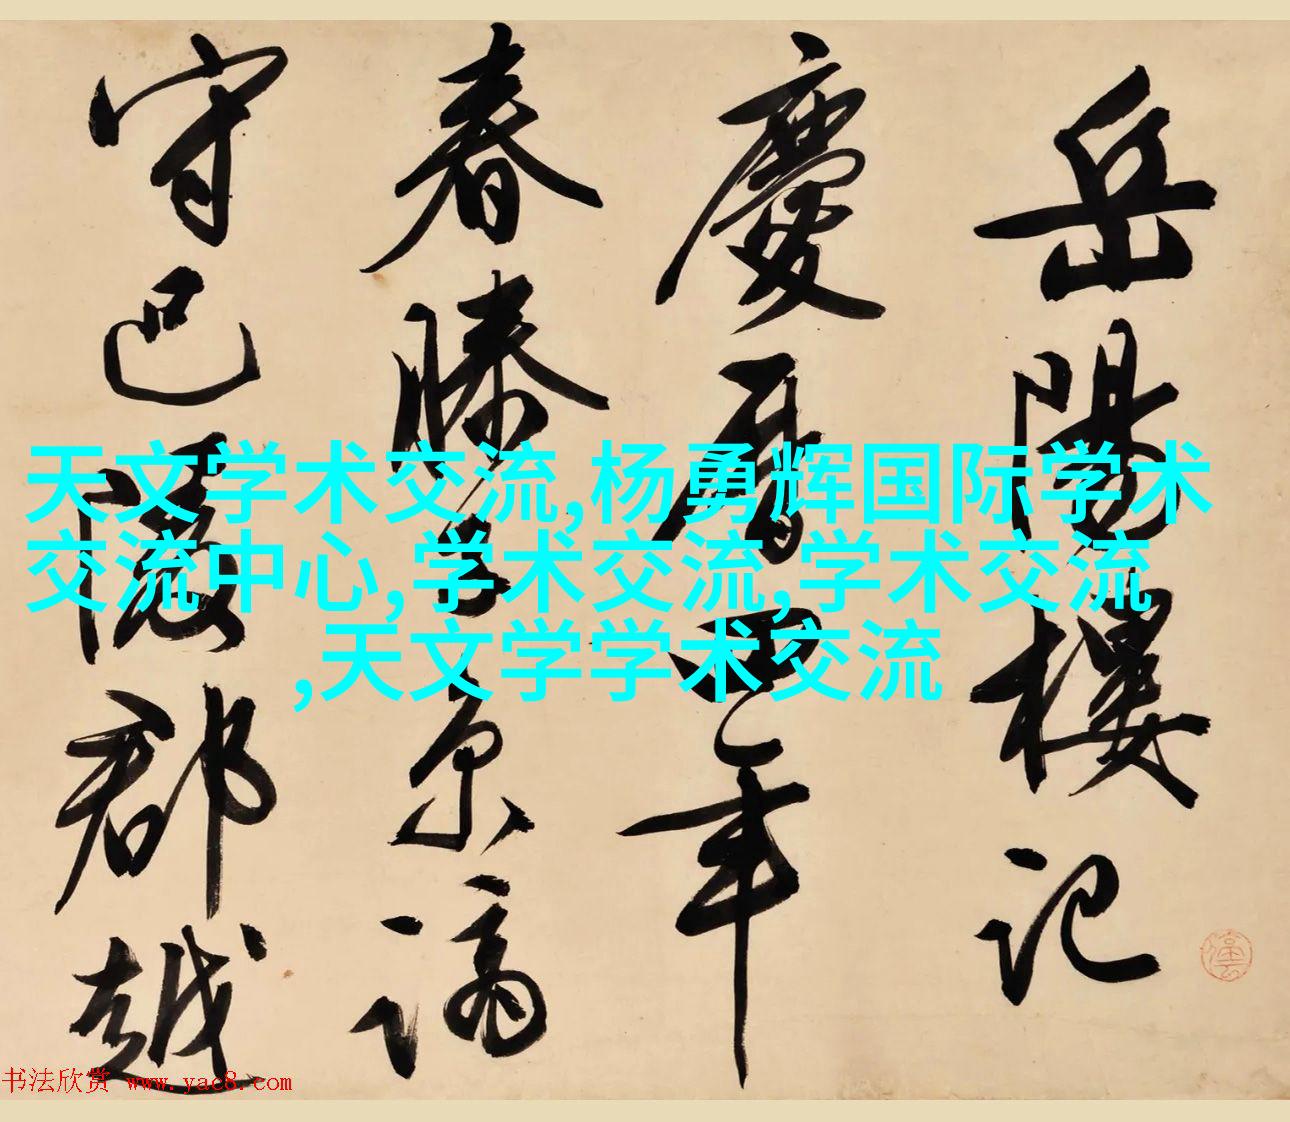 岳陽樓記
慶曆四年
春滕子京謫
守巴陵郡越
天文学术交流,杨勇辉国际学术
交流中心,学术交流,学术交流
,天文学学术交流
书法欣赏 www.yac8.com